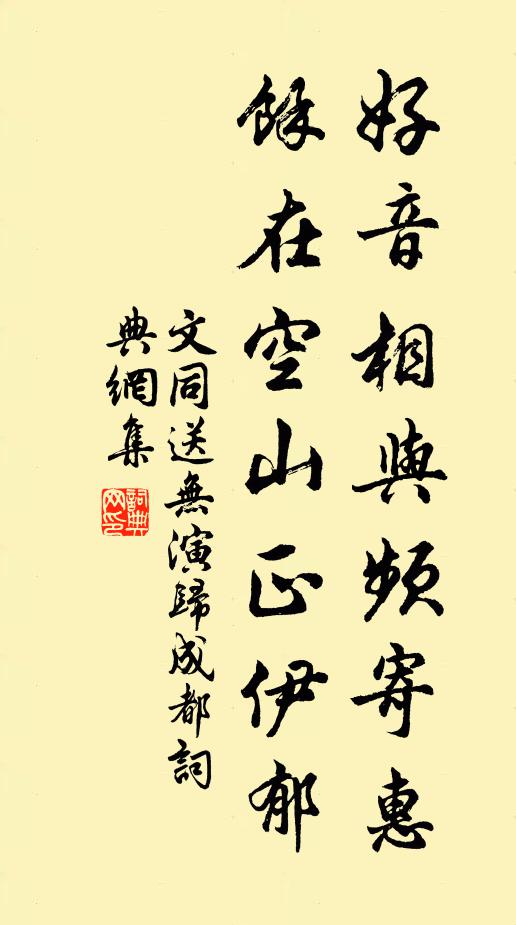 好音相與頻寄惠
餘在空山正伊郁
文同送無演歸成都詞
典網集
詞典
网印